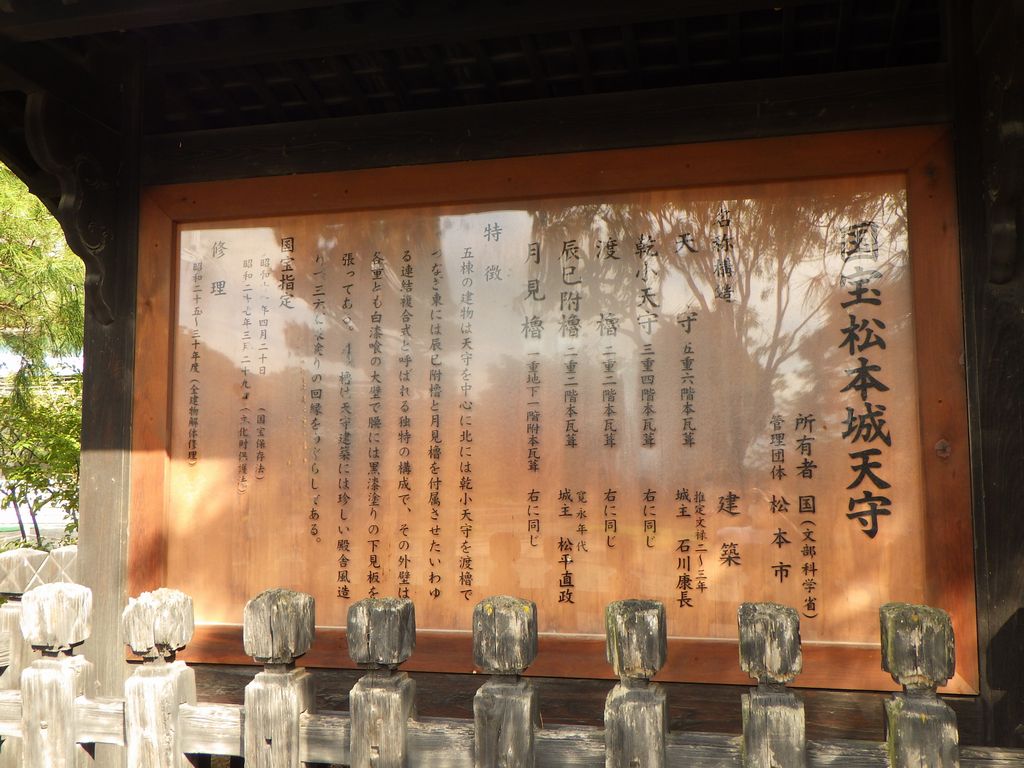 国宝松本城天守
所有者 国(文部科学省)
管理団体 松本市
名称構結 建築
天守 五重六階本瓦葺 推定文禄二~三年 城主 石川康長
乾小天守 三重四階本瓦葺 右に同じ
渡櫓 二重二階本瓦葺 右に同じ
辰巳附櫓 二重二階本瓦葺 寛永年代 城主 松平直政
月見櫓 一重地下一階附本瓦葺 右に同じ
特徴
五棟の建物は天守を中心に北には乾小天守を渡櫓で
つなぎ東には辰巳附櫓と月見櫓を付属させたいわゆ
る連結複合式と呼ばれる独特の構成で、その外壁は
各重とも白漆喰の大壁で腰には黒漆塗りの下見板を
張ってある。月見櫓は天守建築には珍しい殿舎風造
りの回縁をめぐらしてある。
国宝指定
昭和 年四月二十日 (国宝保存法)
昭和二十七年三月二十九日 (文化財保護法)
修理
昭和二十五~三十年度(全建物解体修理)